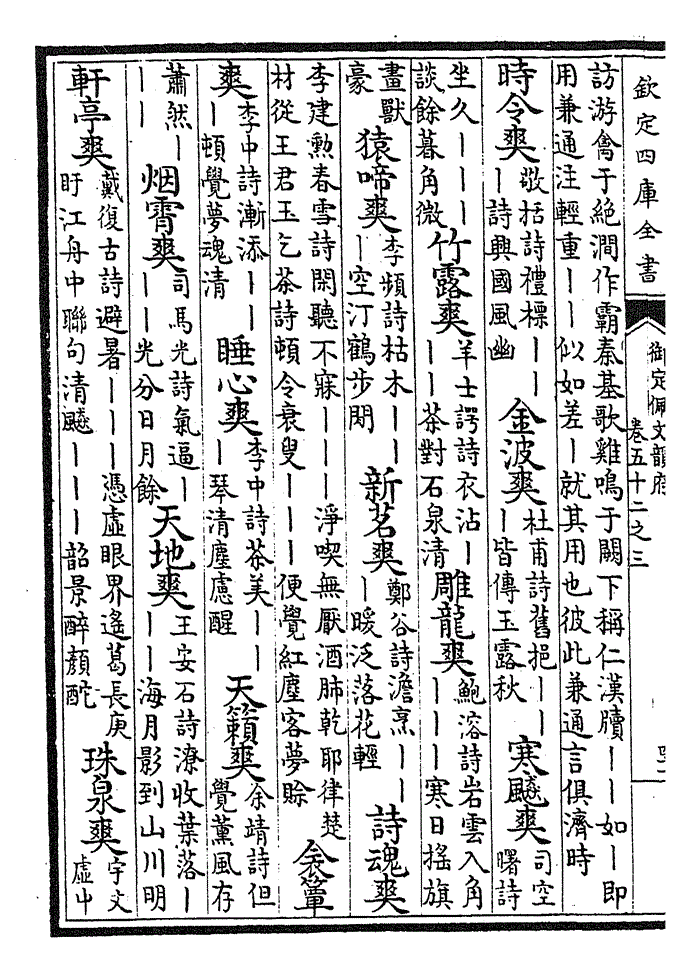 欽定四庫全書
御定佩文韻府
卷五十二之三
訪游禽于絶澗作霸秦基歌雞鳴于闕下稱仁漢牘丨丨如丨即
用兼通注輕重丨丨似如差丨就其用也彼此兼通言俱濟時
時令爽 敬括詩禮標丨丨丨詩興國風幽 金波爽 杜甫詩舊挹丨丨丨皆傳玉露秋 寒飈爽 司空曙詩
坐久丨丨丨談餘暮角微 竹露爽 羊士諤詩衣沾丨丨丨茶對石泉清 雕龍爽 鮑溶詩岩雲入角丨丨丨寒日搖旗
畫獸豪 猿啼爽 李頻詩枯木丨丨丨空汀鶴步閑 新茗爽 鄭谷詩澹烹丨丨丨暖泛落花輕 詩魂爽
李建勲春雪詩閑聽不寐丨丨丨淨喫無厭酒肺乾耶律楚
材從王君玉乞茶詩頓令衰叟丨丨丨便覺紅塵客夢賖 衾簟
爽 李中詩漸添丨丨丨頓覺夢魂清 睡心爽 李中詩茶美丨丨丨琴清塵慮醒 天籟爽 余靖詩但覺薰風存
蕭然丨丨丨 烟霄爽 司馬光詩氣逼丨丨丨光分日月餘 天地爽 王安石詩潦收葉落丨丨丨海月影到山川明
軒亭爽 戴復古詩避暑丨丨丨憑虛眼界遙葛長庚盱江舟中聯句清飈丨丨丨韶景醉顔酡 珠泉爽 宇文虛中